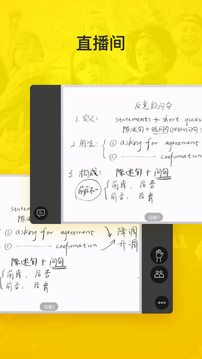 直播间
反意疑问句
1. 定义:
statements + short ques
陈述句 +
2. 用法: ① asking for agreement
② ——— confirmation
3. 构成: 陈述句 + 问句
前后不一
前肯, 后否
前否, 后肯
statem
陈述
① asking for agreement → 降调
② ——— confirmation → 升调
陈述句 + 问句
前肯, 后否
前否, 后肯